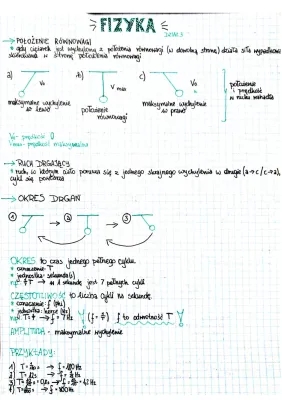 FIZYKA
→ POŁOŻENIE RÓWNOWAGI
• gdy ciężarek jest wychylony z położenia równowagi (w dowolną stronę) działa siła wypadkowa
skierowana w stronę położenia równowagi
a) b) c)
V₀ V max V₀
położenie i prędkość w ruchu wahadła
maksymalne wychylenie w lewo
położenie równowagi
maksymalne wychylenie w prawo
V₀ - prędkość 0
Vmax - prędkość maksymalna
→ RUCH DRGAJĄCY
• ruch, w którym ciało porusza się z jednego skrajnego wychylenia w drugie (a→c/c→a),
cykl się powtarza
→ OKRES DRGAŃ
① → ② → ③
OKRES to czas jednego pełnego cyklu.
• oznaczenie: T
• jednostka: sekunda (s)
w 1 sekundę jest 7 pełnych cykli
CZĘSTOTLIWOŚĆ to liczba cykli na sekundę.
• oznaczenie: f (Hz)
• jednostka: herc (Hz)
f to odwrotność T
AMPLITUDA - maksymalne wychylenie
PRZYKŁADY: